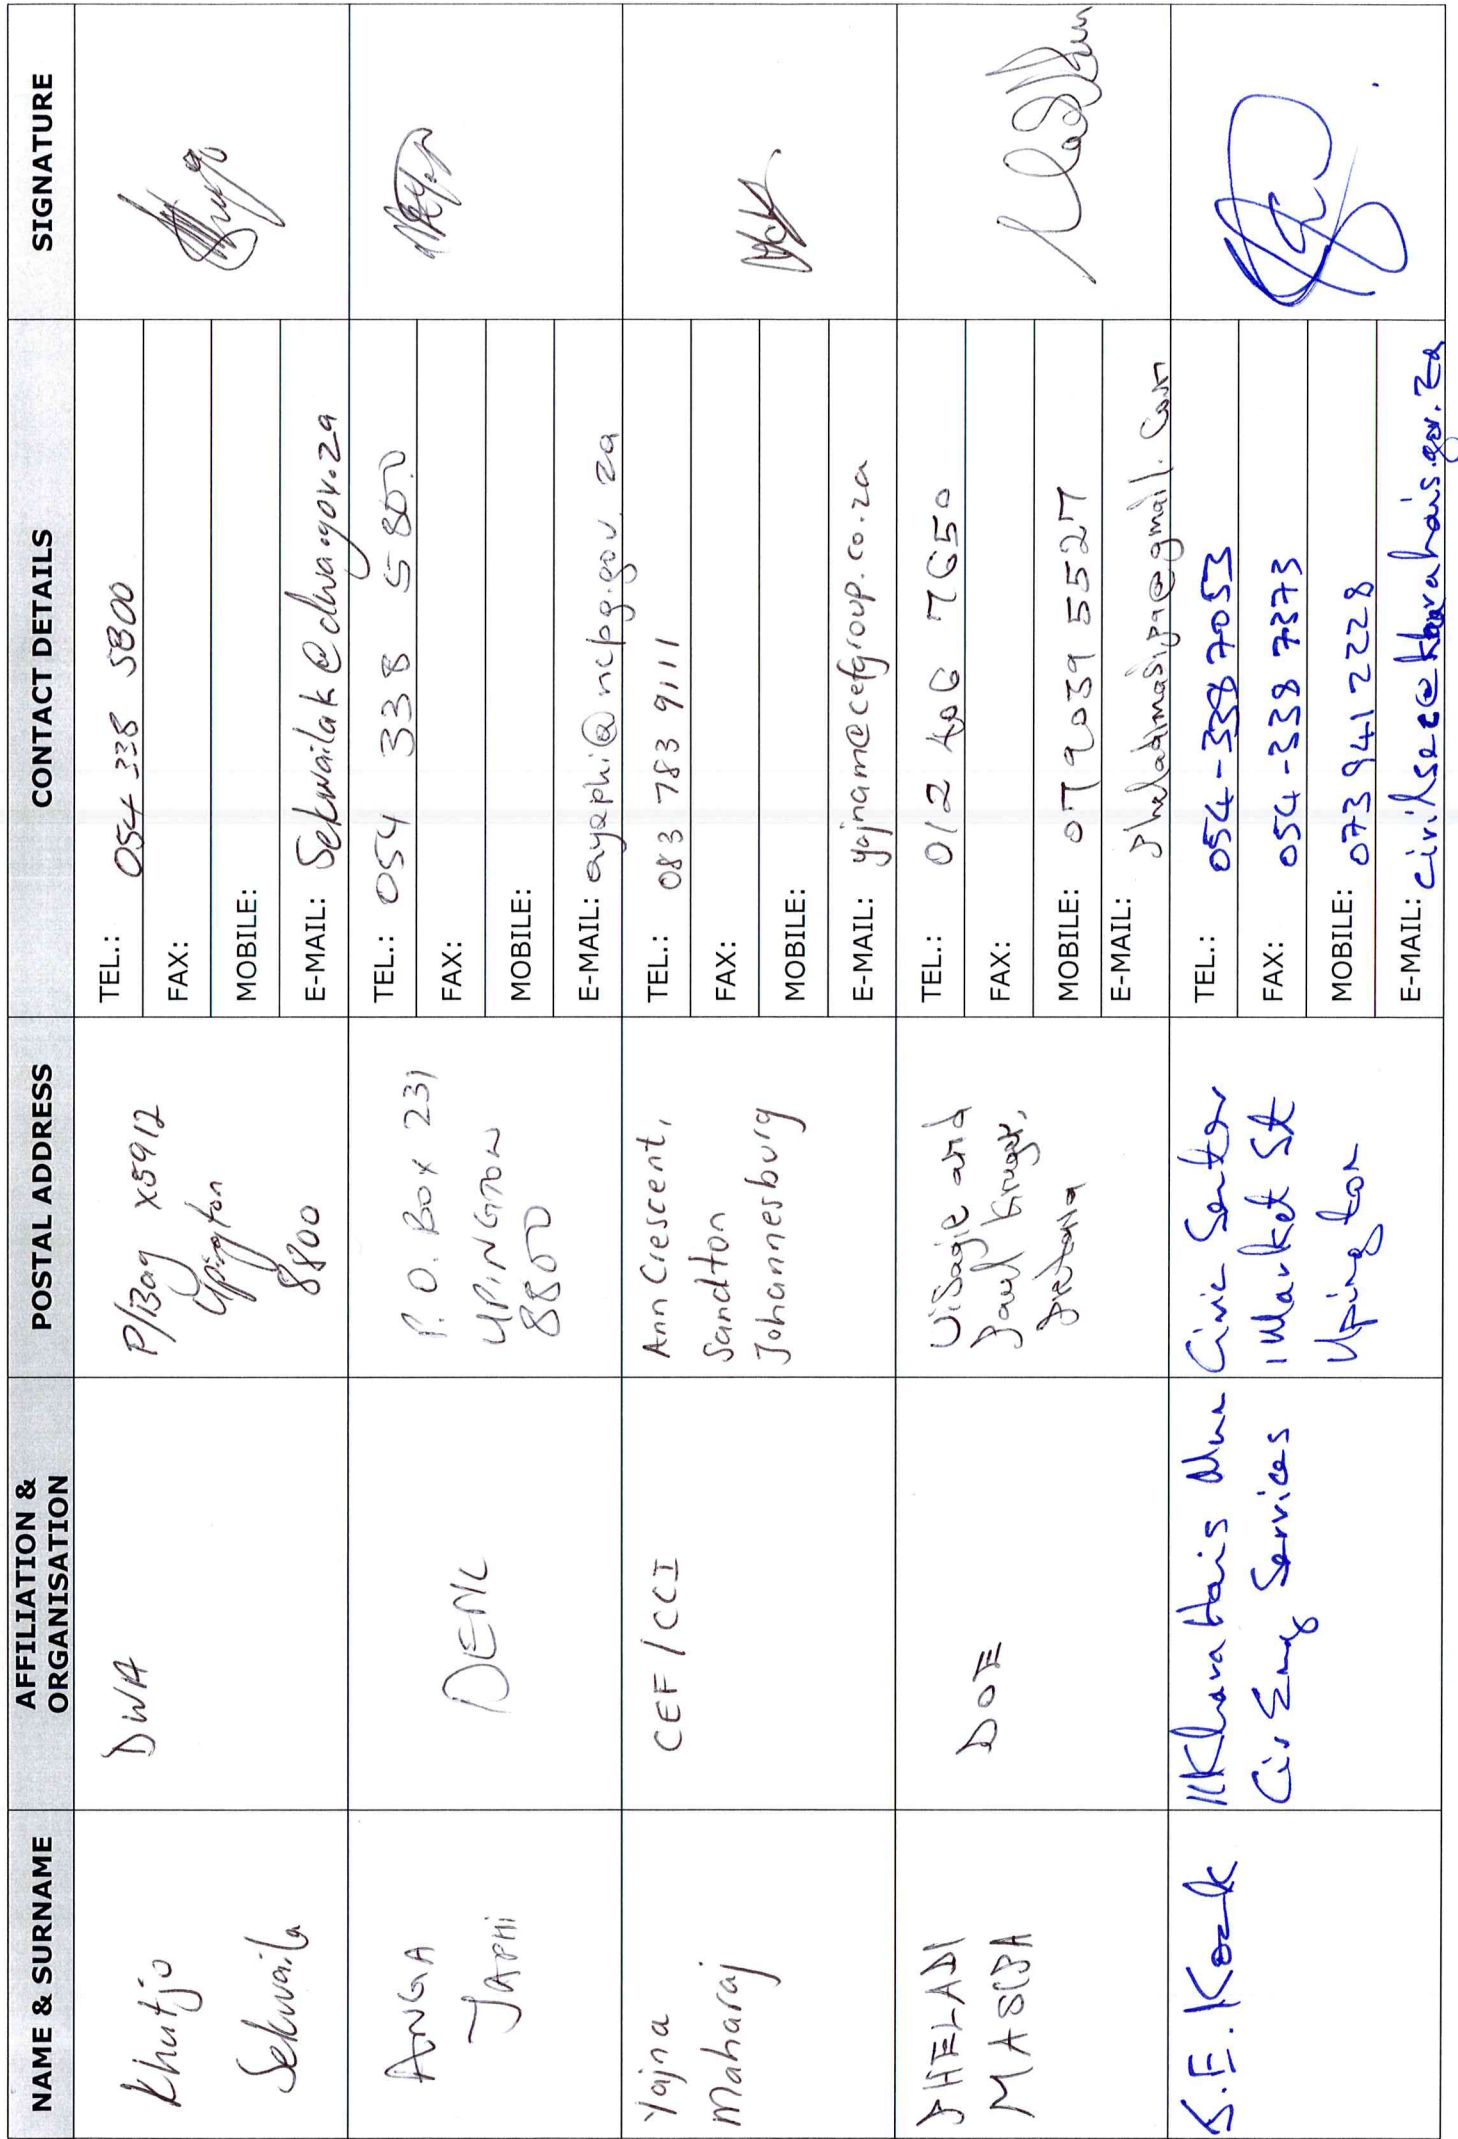 NAME & SURNAME
AFFILIATION &
ORGANISATION
POSTAL ADDRESS
CONTACT DETAILS
SIGNATURE
Khutjo
Sekwaila
DWA
P/Bag x5912
Upington
8800
TEL.: 054 338 5800
FAX:
MOBILE:
E-MAIL: Sekwailak@dwa.gov.za
ANGA
JAPHI
DENC
P.O. Box 231
UPINGTON
8800
TEL.: 054 338 5800
FAX:
MOBILE:
E-MAIL: ayaphi@ncpg.gov.za
Yajna
Maharaj
CEF/CCI
Ann Crescent,
Sandton
Johannesburg
TEL.: 083 783 9111
FAX:
MOBILE:
E-MAIL: yajnam@cefgroup.co.za
PHELADI
MASIPA
DOE
Visagie and
Paul Kruger,
Pretoria
TEL.: 012 406 7650
FAX:
MOBILE: 079 039 5527
E-MAIL: pheladimasipa@gmail.com
S.E. Kock
//Khara Hais Mun
Civ Eng Services
Civic Senter
1 Market St
Upington
TEL.: 054-3387053
FAX: 054-338 7373
MOBILE: 073 941 2228
E-MAIL: civilsec@kharahais.gov.za